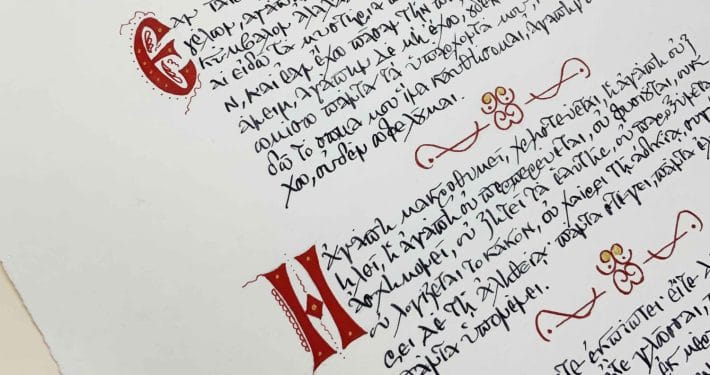 Ἐὰν
γέλων, ἀγάπ
κύμβαλον ἀλαλ
αὶ εἰδῶ τὰ μυστήρια
ν, καὶ ἐὰν ἔχω πᾶσαν τὴν π
άνειν, ἀγάπην δὲ μὴ ἔχω, οὐθέν
ωμίσω πάντα τὰ ὑπάρχοντά μου,
δῶ τὸ σῶμα μου ἵνα καυθήσωμαι, ἀγάπην
χω, οὐδὲν ὠφελοῦμαι.
Ἡ ἀγάπη μακροθυμεῖ, χρηστεύεται, ἡ ἀγάπη οὐ ζ
ηλοῖ, ἡ ἀγάπη οὐ περπερεύεται, οὐ φυσιοῦται, οὐκ
ἀσχημονεῖ, οὐ ζητεῖ τὰ ἑαυτῆς, οὐ παροξύνεται
οὐ λογίζεται τὸ κακόν, οὐ χαίρει τῇ ἀδικίᾳ, συγχ
αίρει δὲ τῇ ἀληθείᾳ πάντα στέγει, πάντα
πάντα ὑπομένει.
τε ἐκπίπτει· εἴτε
γλῶσσαι,